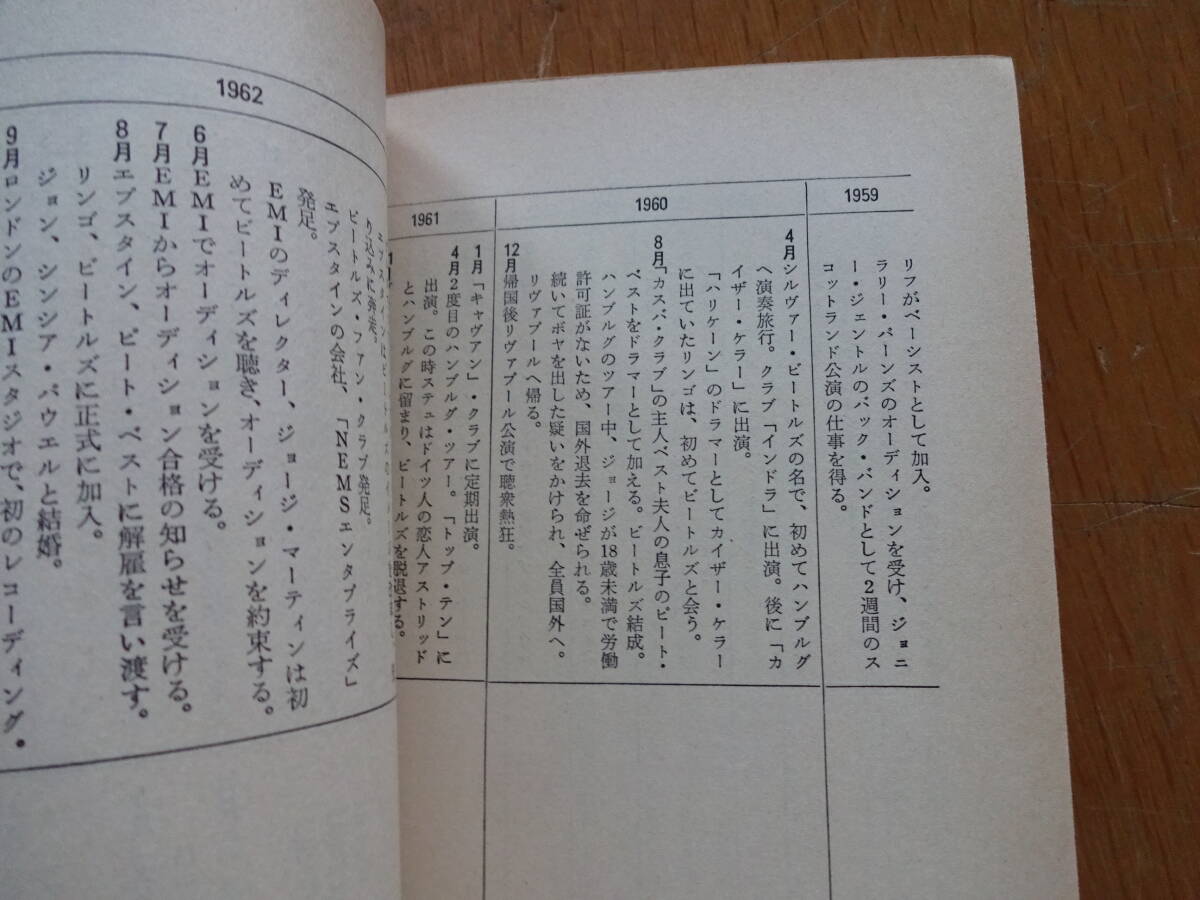 1959
リフがベーシストとして加入。
ラリー・パーンズのオーディションを受け、ジョニ
ー・ジェントルのバック・バンドとして2週間のス
コットランド公演の仕事を得る。
1960
4月シルヴァー・ビートルズの名で、初めてハンブルグ
へ演奏旅行。クラブ「インドラ」に出演。後に「カ
イザー・ケラー」に出演。
「ハリケーン」のドラマーとしてカイザー・ケラー
に出ていたリンゴは、初めてビートルズと会う。
8月「カスバ・クラブ」の主人ベスト夫人の息子のピート・
ベストをドラマーとして加える。ビートルズ結成。
ハンブルグのツアー中、ジョージが18歳未満で労働
許可証がないため、国外退去を命ぜられる。
続いてボヤを出した疑いをかけられ、全員国外へ。
リヴァプールへ帰る。
12月帰国後リヴァプール公演で聴衆熱狂。
1961
1月「キャヴァン」・クラブに定期出演。
4月2度目のハンブルグ・ツアー。「トップ・テン」に
出演。この時ステュはドイツ人の恋人アストリッド
とハンブルグに留まり、ビートルズを脱退する。
1962
り込みに奔走。
ビートルズ・ファン・クラブ発足。
エプスタインの会社、「NEMSエンタプライズ」
発足。
EMIのディレクター、ジョージ・マーティンは初
めてビートルズを聴き、オーディションを約束する。
6月EMIでオーディションを受ける。
7月EMIからオーディション合格の知らせを受ける。
8月エプスタイン、ピート・ベストに解雇を言い渡す。
リンゴ、ビートルズに正式に加入。
ジョン、シンシア・パウエルと結婚。
9月ロンドンのEMIスタジオで、初のレコーディング・